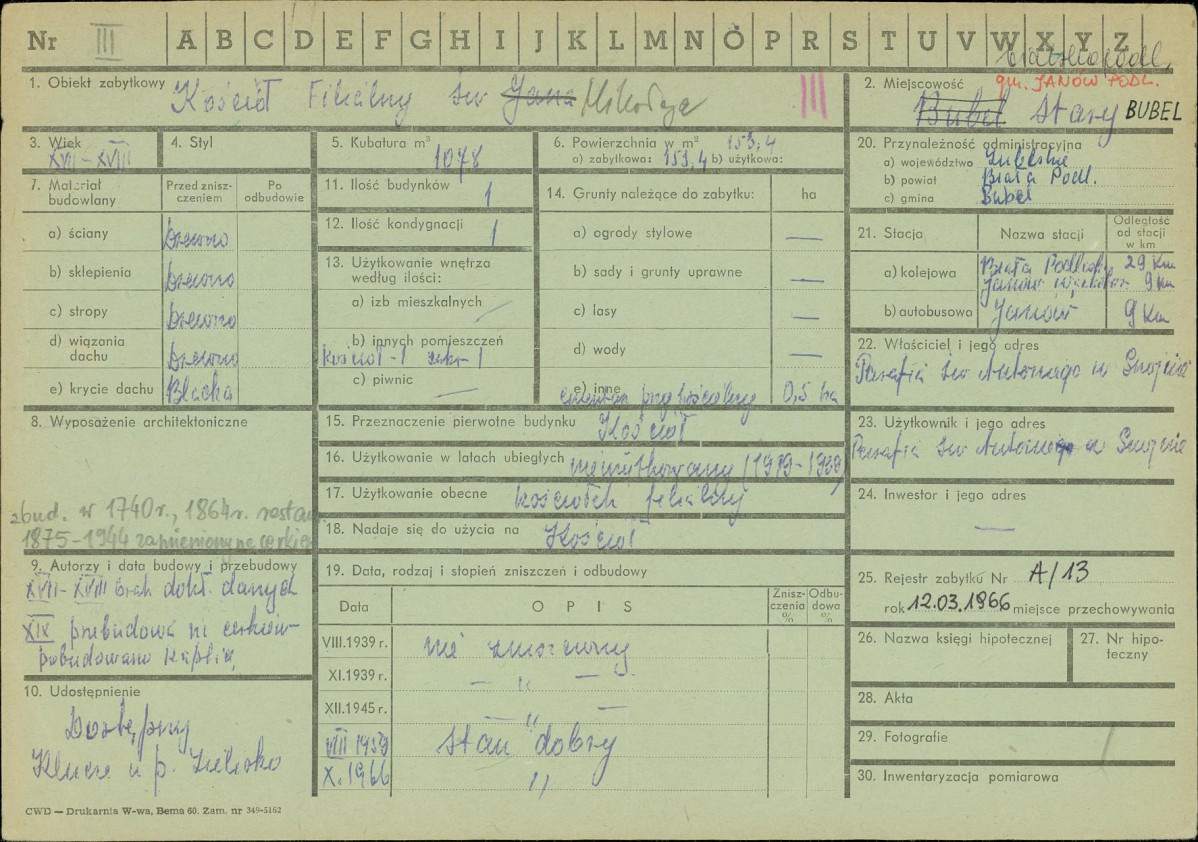 Nr III A B C D E F G H I J K L M N O P R S T U V W X Y Z
1. Obiekt zabytkowy Kościół Filialny św Jana Mikołaja
III
2. Miejscowość
gm. JANÓW PODL.
Bubel Stary BUBEL
3. Wiek
XVII-XVIII
4. Styl
5. Kubatura m³
1078
6. Powierzchnia w m² 153,4
a) zabytkowa: 153,4 b) użytkowa:
20. Przynależność administracyjna
a) województwo Lubelskie
b) powiat Biała Podl.
c) gmina Bubel
7. Materiał budowlany
Przed znisz-
czeniem
Po
odbudowie
a) ściany drewno
b) sklepienia drewno
c) stropy drewno
d) wiązania
dachu drewno
e) krycie dachu Blacha
11. Ilość budynków 1
12. Ilość kondygnacji 1
13. Użytkowanie wnętrza
według ilości:
a) izb mieszkalnych —
b) innych pomieszczeń
kościół-1 zakr-1
c) piwnic —
14. Grunty należące do zabytku: ha
a) ogrody stylowe —
b) sady i grunty uprawne —
c) lasy —
d) wody —
e) inne
cmentarz przykościelny 0,5 ha
21. Stacja
Nazwa stacji
Odległość
od stacji
w km
a) kolejowa Biała Podlaska 29 km
Janów 9 km
b) autobusowa Janów 9 km
22. Właściciel i jego adres
Parafia św Antoniego w
8. Wyposażenie architektoniczne
zbud. w 1740r., 1864r. restau
1875-1944 zamieniony na cerkiew
15. Przeznaczenie pierwotne budynku Kościół
16. Użytkowanie w latach ubiegłych nieużytkowany (1919-1939)
17. Użytkowanie obecne kościółek filialny
18. Nadaje się do użycia na Kościół
23. Użytkownik i jego adres
Parafia św Antoniego w
24. Inwestor i jego adres
—
9. Autorzy i data budowy i przebudowy
XVII-XVIII brak dokł. danych
XIX przebudowa na cerkiew-
pobudowano kaplicę
10. Udostępnienie
Dostępny
Klucze u p.
19. Data, rodzaj i stopień zniszczeń i odbudowy
Data
O P I S
Znisz-
czenia
%
Odbu-
dowa
%
VIII.1939 r. nie zniszczony
XI.1939 r. — „ —
XII.1945 r. — „ —
VIII 1959 stan dobry
X. 1966 „
25. Rejestr zabytku Nr A/13
rok 12.03.1866 miejsce przechowywania
26. Nazwa księgi hipotecznej
27. Nr hipo-
teczny
28. Akta
29. Fotografie
30. Inwentaryzacja pomiarowa
CWD — Drukarnia W-wa, Bema 60. Zam. nr 349-5162